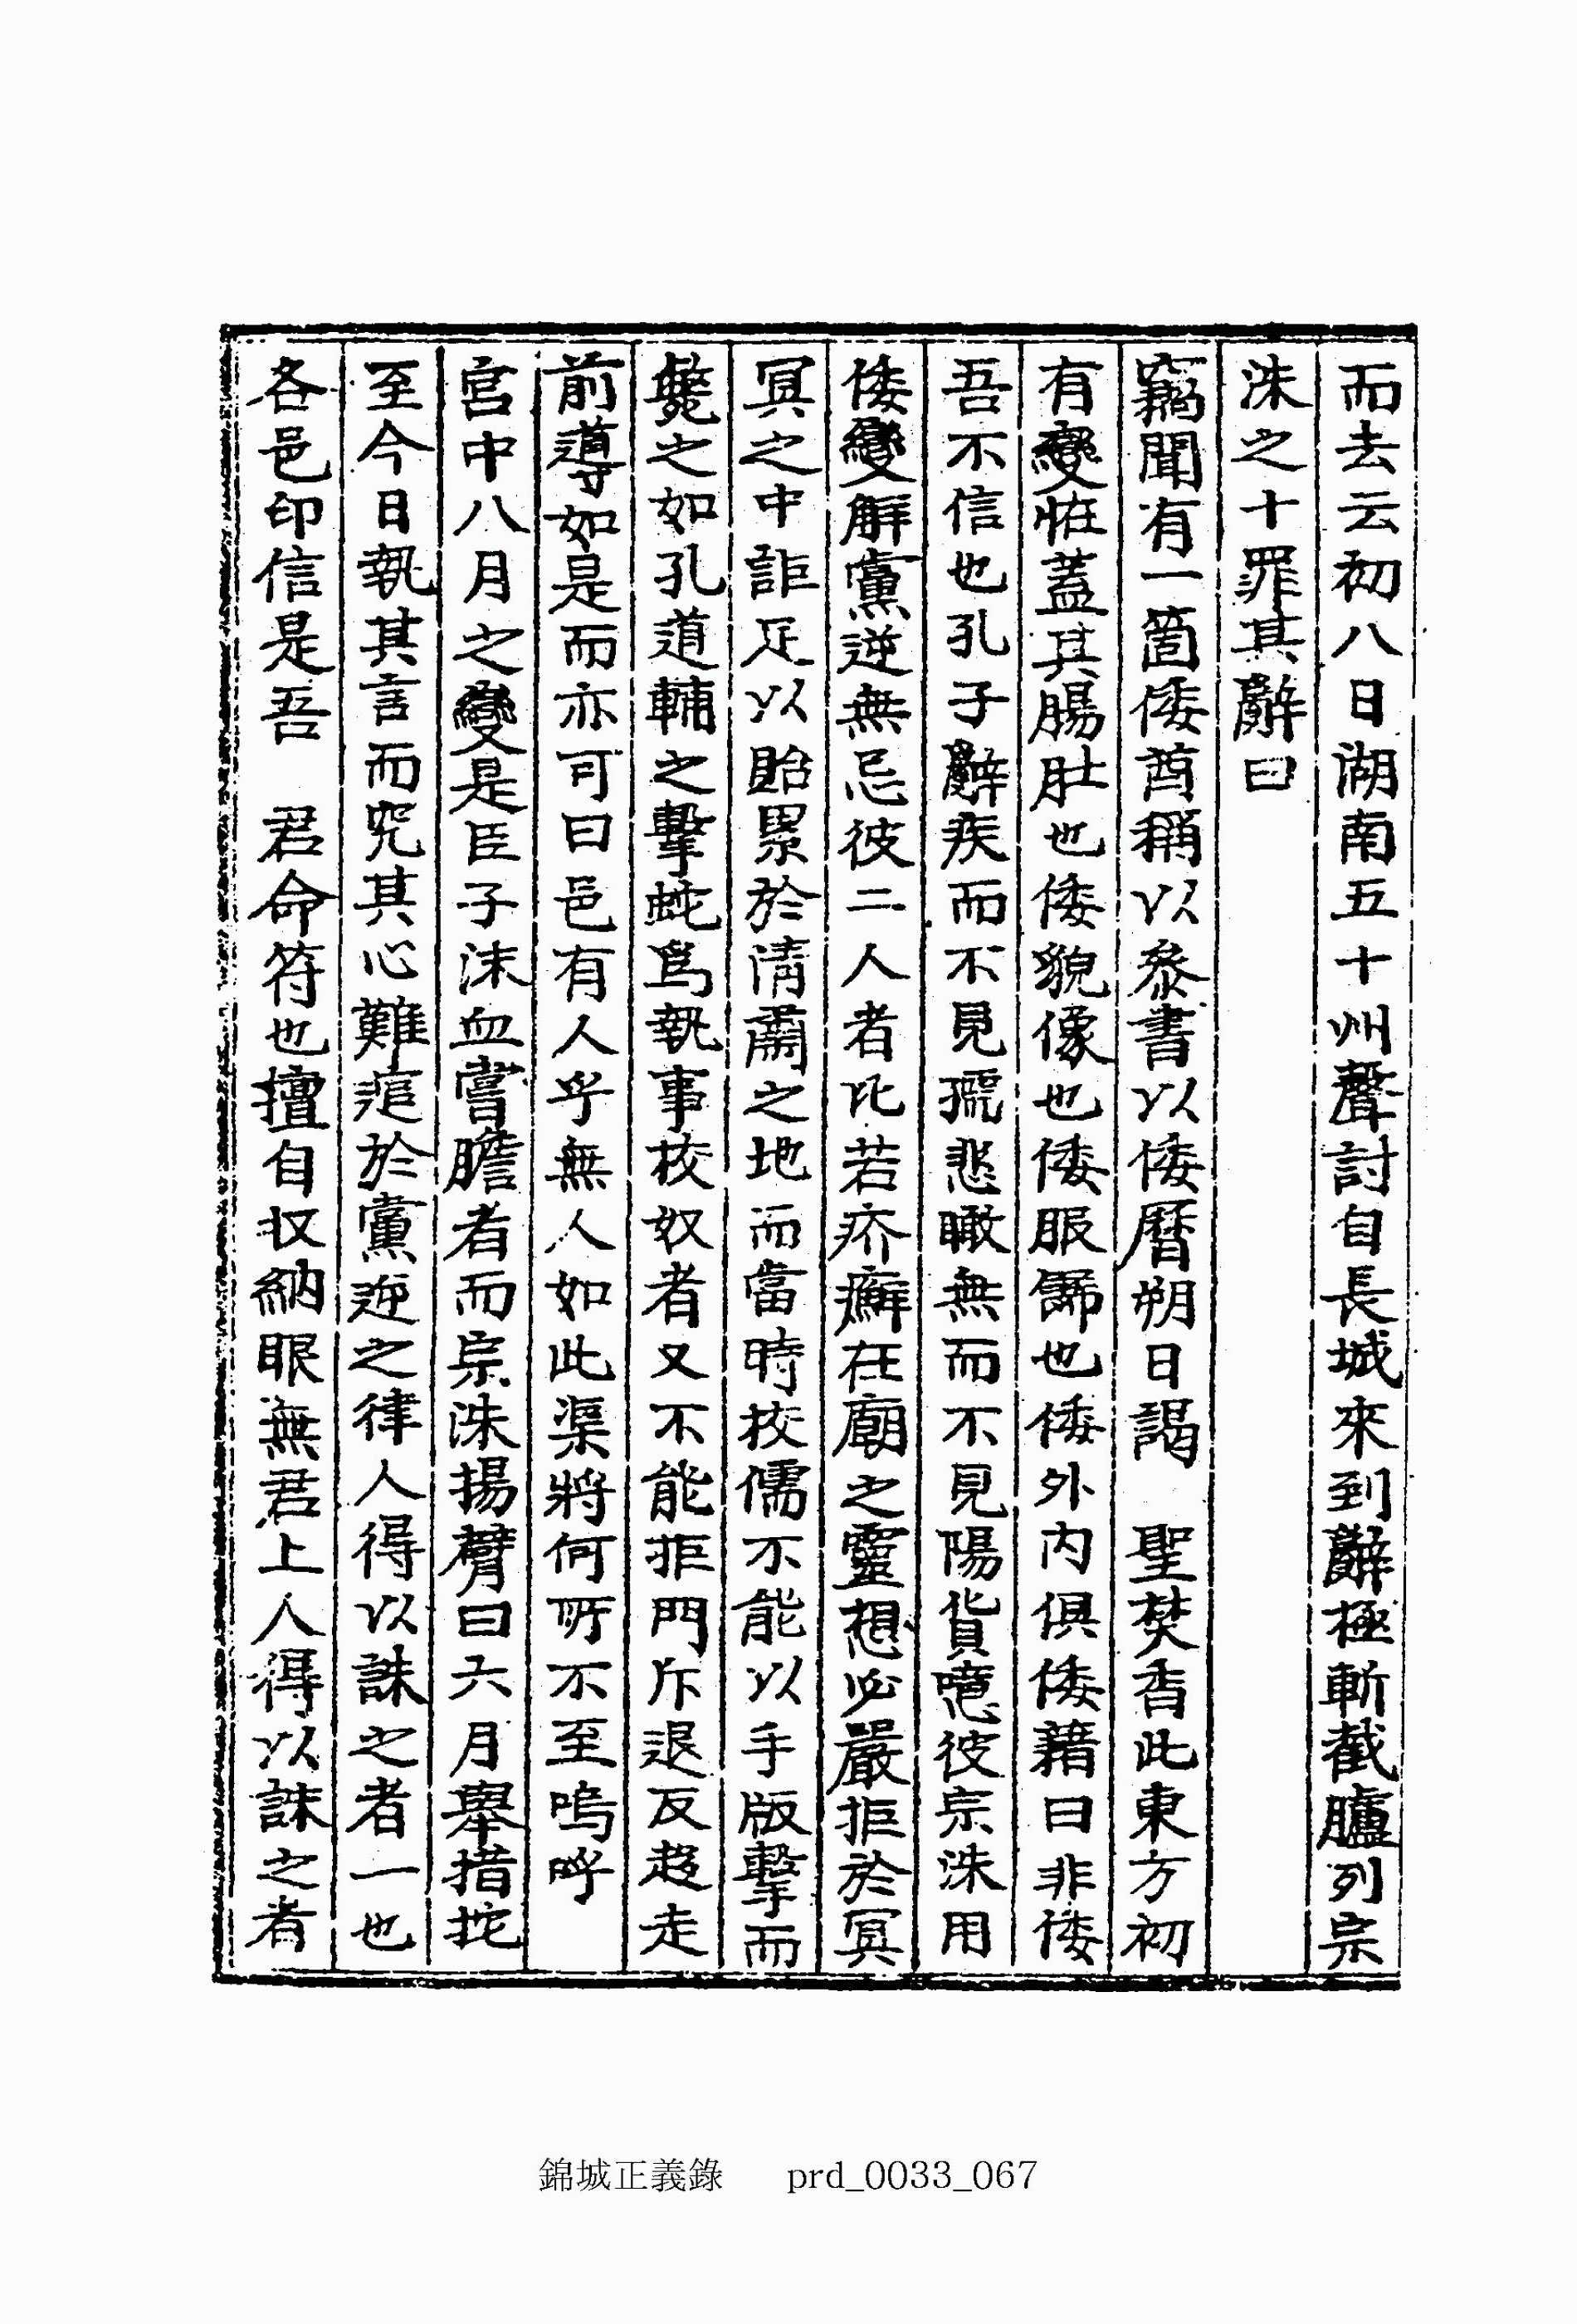 而去云初八日湖南五十州聲討自長城來到辭極斬截臚列宗
洙之十罪其辭曰
竊聞有一箇倭酋稱以叅書以倭曆朔日謁　聖焚香此東方初
有變恠蓋其腸肚也倭貌像也倭服飾也倭外內俱倭藉曰非倭
吾不信也孔子辭疾而不見孺悲瞰無而不見陽貨噫彼宗洙用
倭變解黨逆無忌彼二人者比若疥癬在廟之靈想必嚴拒於冥
冥之中詎足以貽累於清肅之地而當時校儒不能以手版擊而
斃之如孔道輔之擊蛇爲執事校奴者又不能拒門斥退反趍走
前導如是而亦可曰邑有人乎無人如此渠將何所不至嗚呼
宮中八月之變是臣子沫血嘗膽者而宗洙揚臂曰六月舉措挖
至今日執其言而究其心難逭於黨逆之律人得以誅之者一也
各邑印信是吾　君命符也擅自收納眼無君上人得以誅之者
錦城正義錄　prd_0033_067